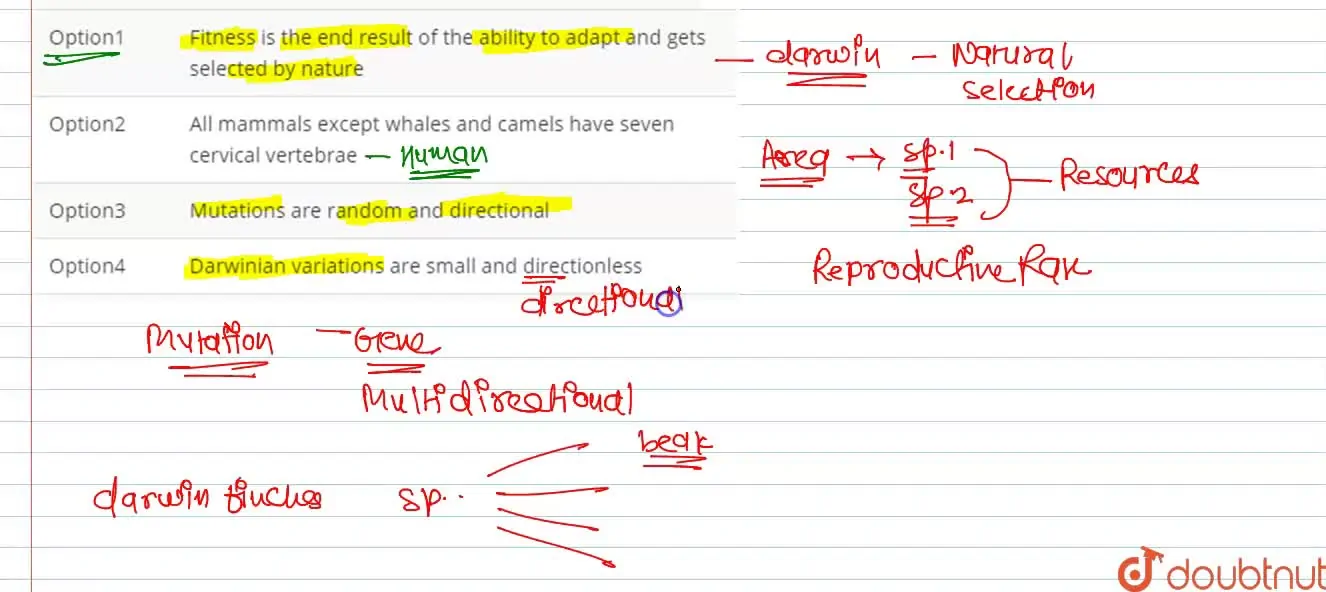 Option1 Fitness is the end result of the ability to adapt and gets
selected by nature
— darwin – Natural
selection
Option2 All mammals except whales and camels have seven
cervical vertebrae – Human
Area → sp.1
sp.2
Resources
Option3 Mutations are random and directional
Option4 Darwinian variations are small and directionless
directional
Reproductive
Mutation – Gene
Multidirectional
beak
darwin finches sp..
doubtnut